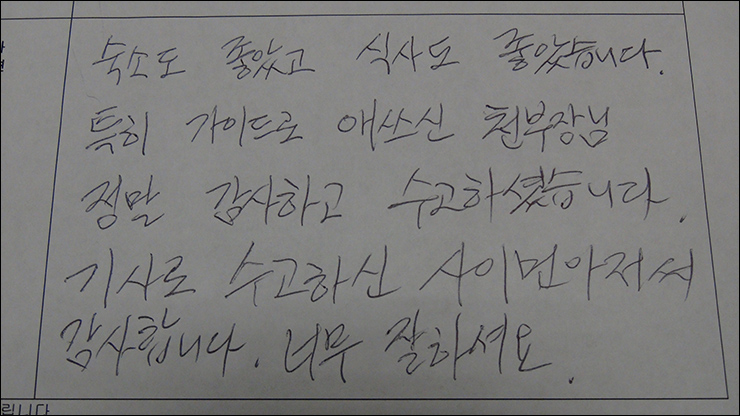 숙소도 좋았고 식사도 좋았습니다.
특히 가이드로 애쓰신 천부장님
정말 감사하고 수고하셨습니다.
기사로 수고하신 사이먼아저씨
감사합니다. 너무 잘하셔요.
립니다